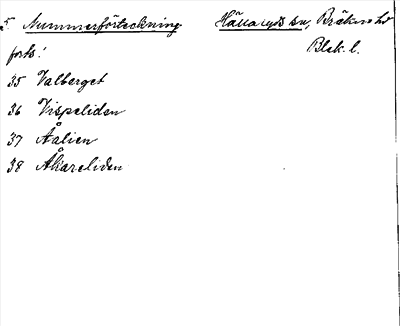 5. Nummerförteckning Hällaryds sn, Bräkne hd
forts. Blek. l.
35 Valberget
36 Vispeliden
37 Åålien
38 Åkareliden